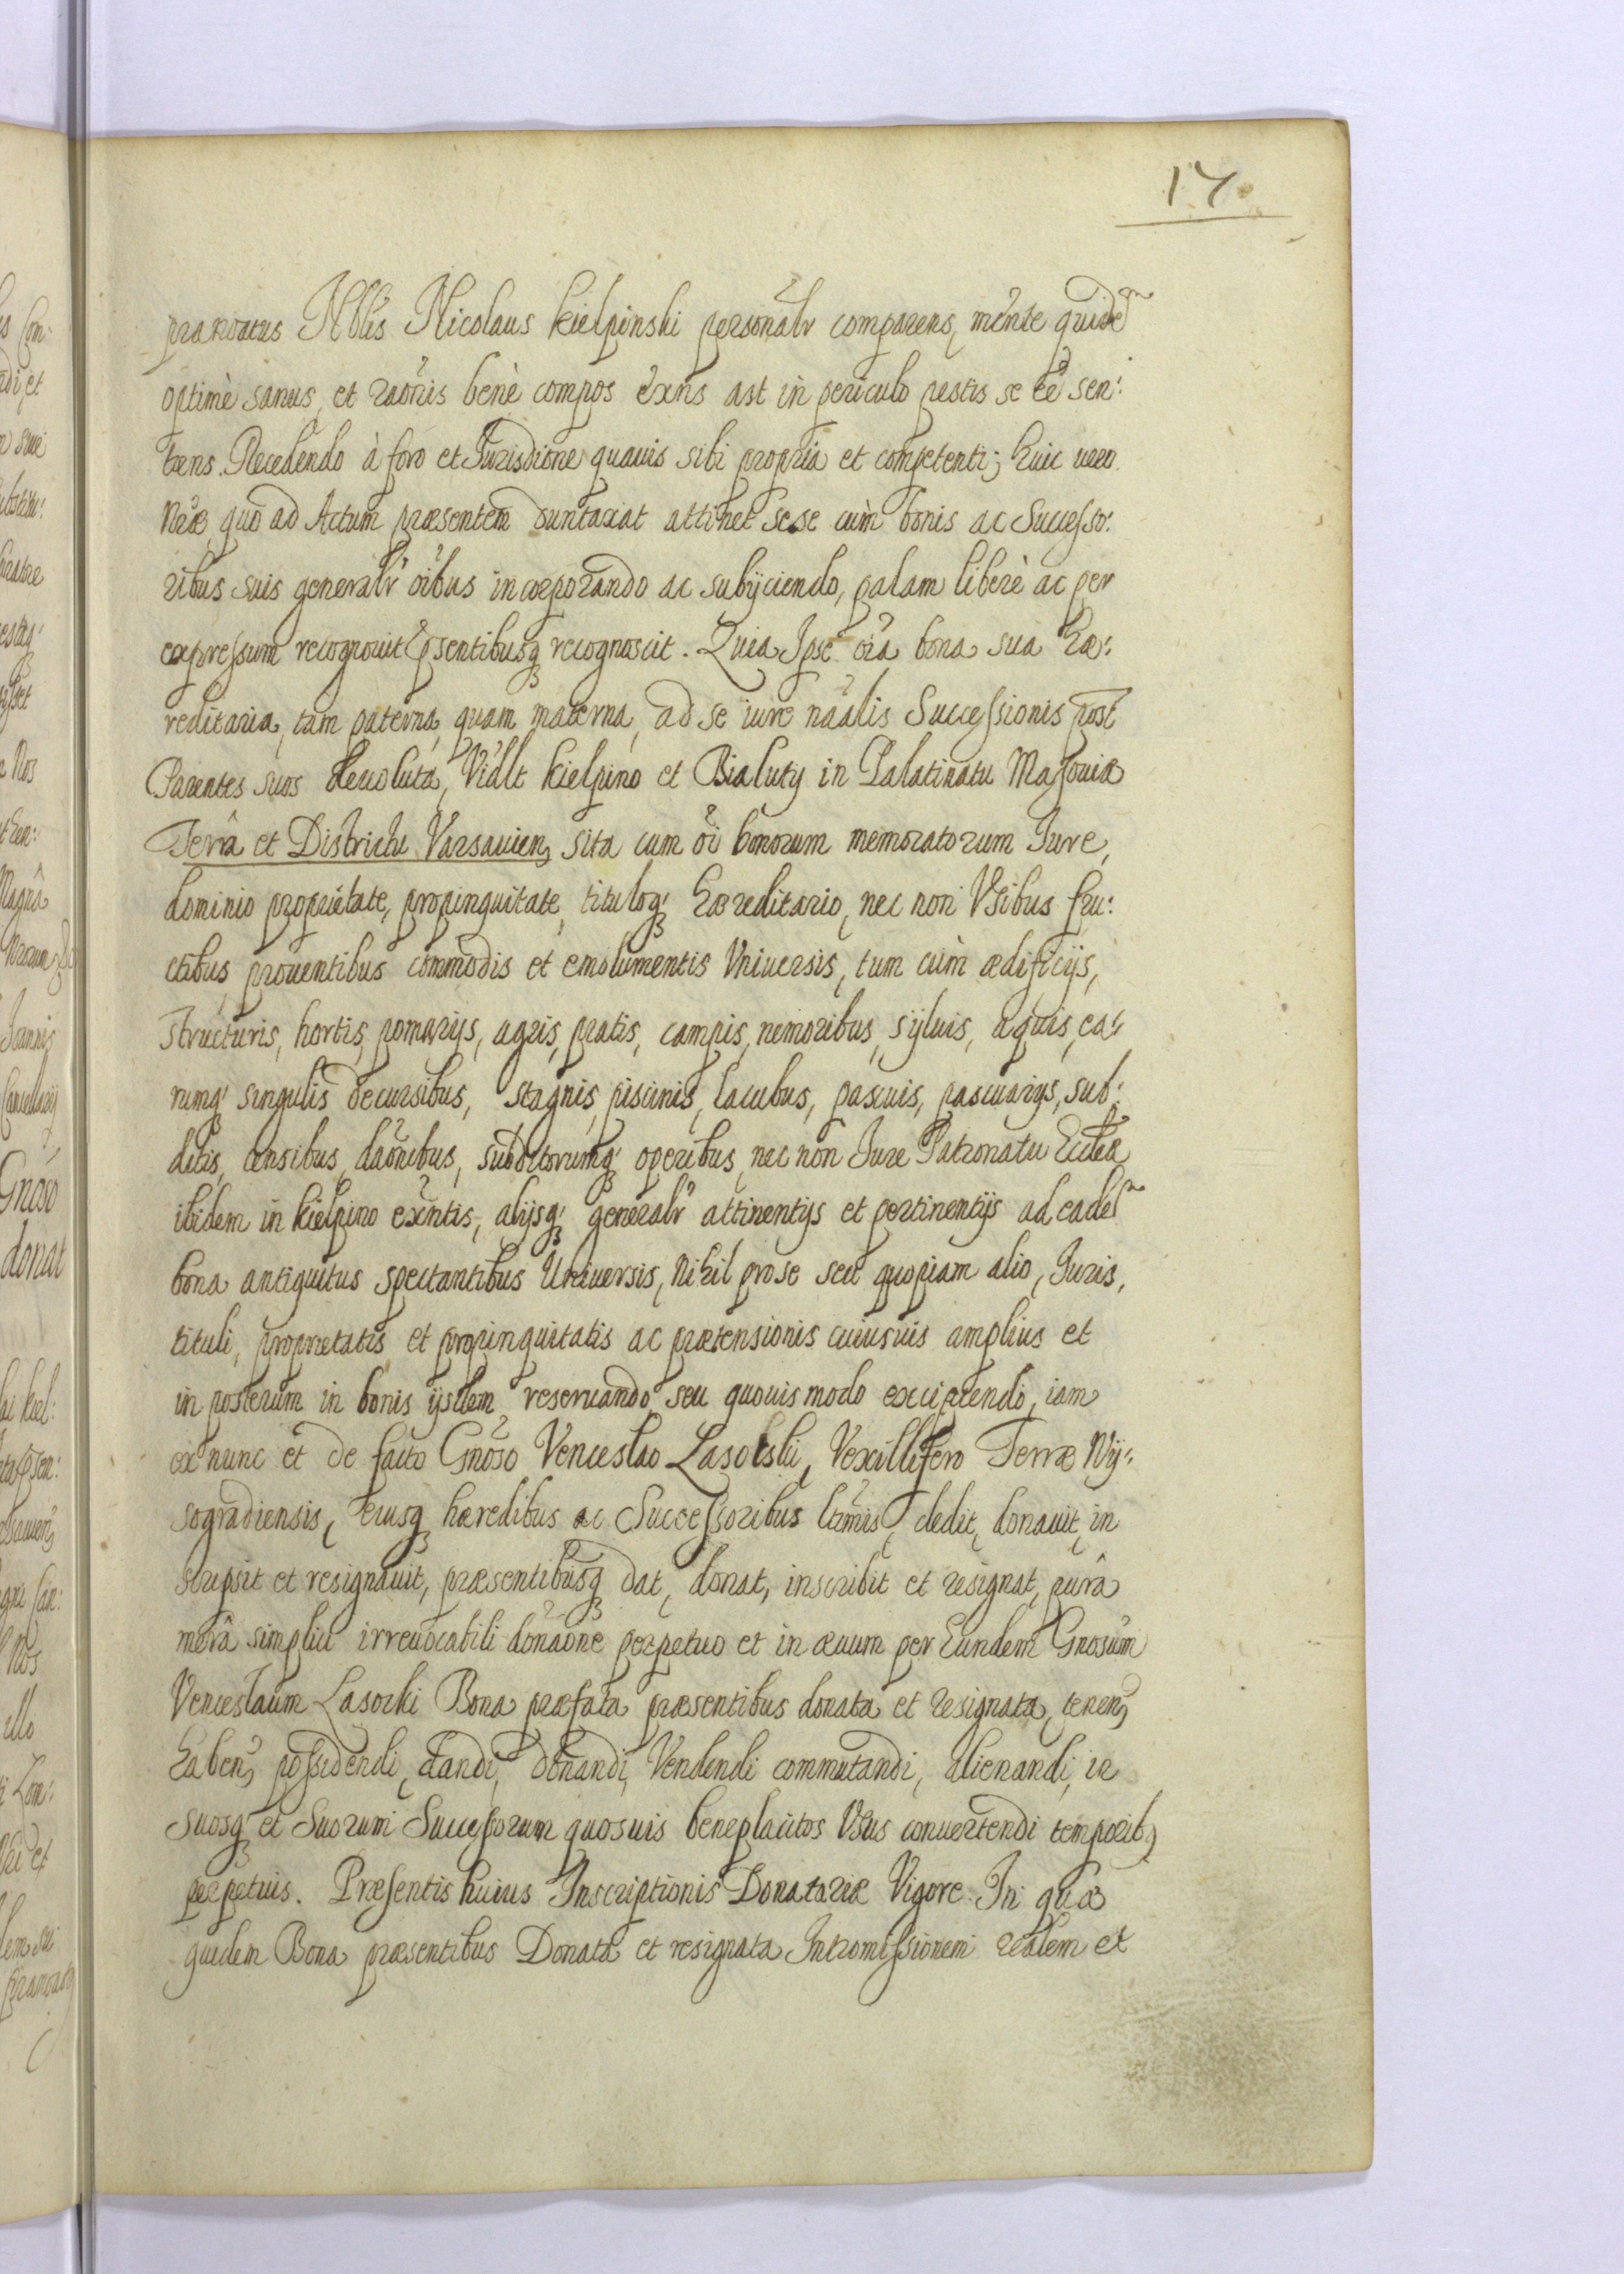 17.
prævocatus Nblis Nicolaus Kielpinski personalr comparens, mente quidem
optimè sanus, et raonis benè compos exns ast in periculo pestis se eē sen:
tiens. Recedendo à foro et Jurisdione quauis sibi propria et competenti; huic vero
Nræ, quò ad Actum præsentem duntaxat attinet sese cùm bonis ac Successo:
ribus suis generalr oibus incorporando ac subijciendo, palam liberè ac per
expressum recognouit psentibusq recognoscit. Quia Ipse oia bona sua hæ:
reditaria, tam paterna, quam materna, ad se iure naalis Successionis post
Parentes suos deuoluta, Vidlt Kielpino et Bialuty in Palatinatu Masouiæ
Terrâ et Districtu Varsauien, sita cum oi bonorum memoratorum Jure,
dominio proprietate, propinquitate, tituloq; hæreditario, nec non Vsibus fru:
ctibus, prouentibus commodis et emolumentis Vniuersis, tum cùm ædificijs,
structuris, hortis, pomarijs, agris, pratis, campis, nemoribus, syluis, aquis, ea:
rumq; singulis decursibus, stagnis, piscinis, lacubus, pascuis, pascuarijs, sub:
ditis, censibus, daonibus, subditorumq; operibus, nec non Jure Patronatu Ecclæ
ibidem in Kielpino exntis, alijsq; generalr attinentijs et pertinentijs ad eadem
bona antiquitus spectantibus Vniuersis, Nihil pro se seu quopiam alio, Juris,
tituli, proprietatis et propinquitatis ac prætensionis cuiusuis amplius et
in posterum in bonis ijsdem reseruando seu quouis modo excipiendo, iam
ex nunc et de facto Gnoso Venceslao Lasotski, Vexillifero Terræ Wy:
sogradiensis, eiusq hæredibus ac Successoribus ltimis, dedit, donauit, in
scripsit et resignauit, præsentibusq dat, donat, inscribit et resignat, purâ
merâ simplici irreuocabili donaone perpetuo et in æuum per Eundem Gnosum
Venceslaum Lasotski Bona præfata præsentibus donata et resignata, tenen,
haben, possidendi, dandi, donandi, Vendendi commutandi, alienandi, in
suosq et Suorum Successorum quosuis beneplacitos Vsus conuertendi temporib,
perpetuis. Præsentis huius Inscriptionis Donatoriæ Vigore. In quæ
quidem Bona præsentibus Donata et resignata Intromissionem realem et